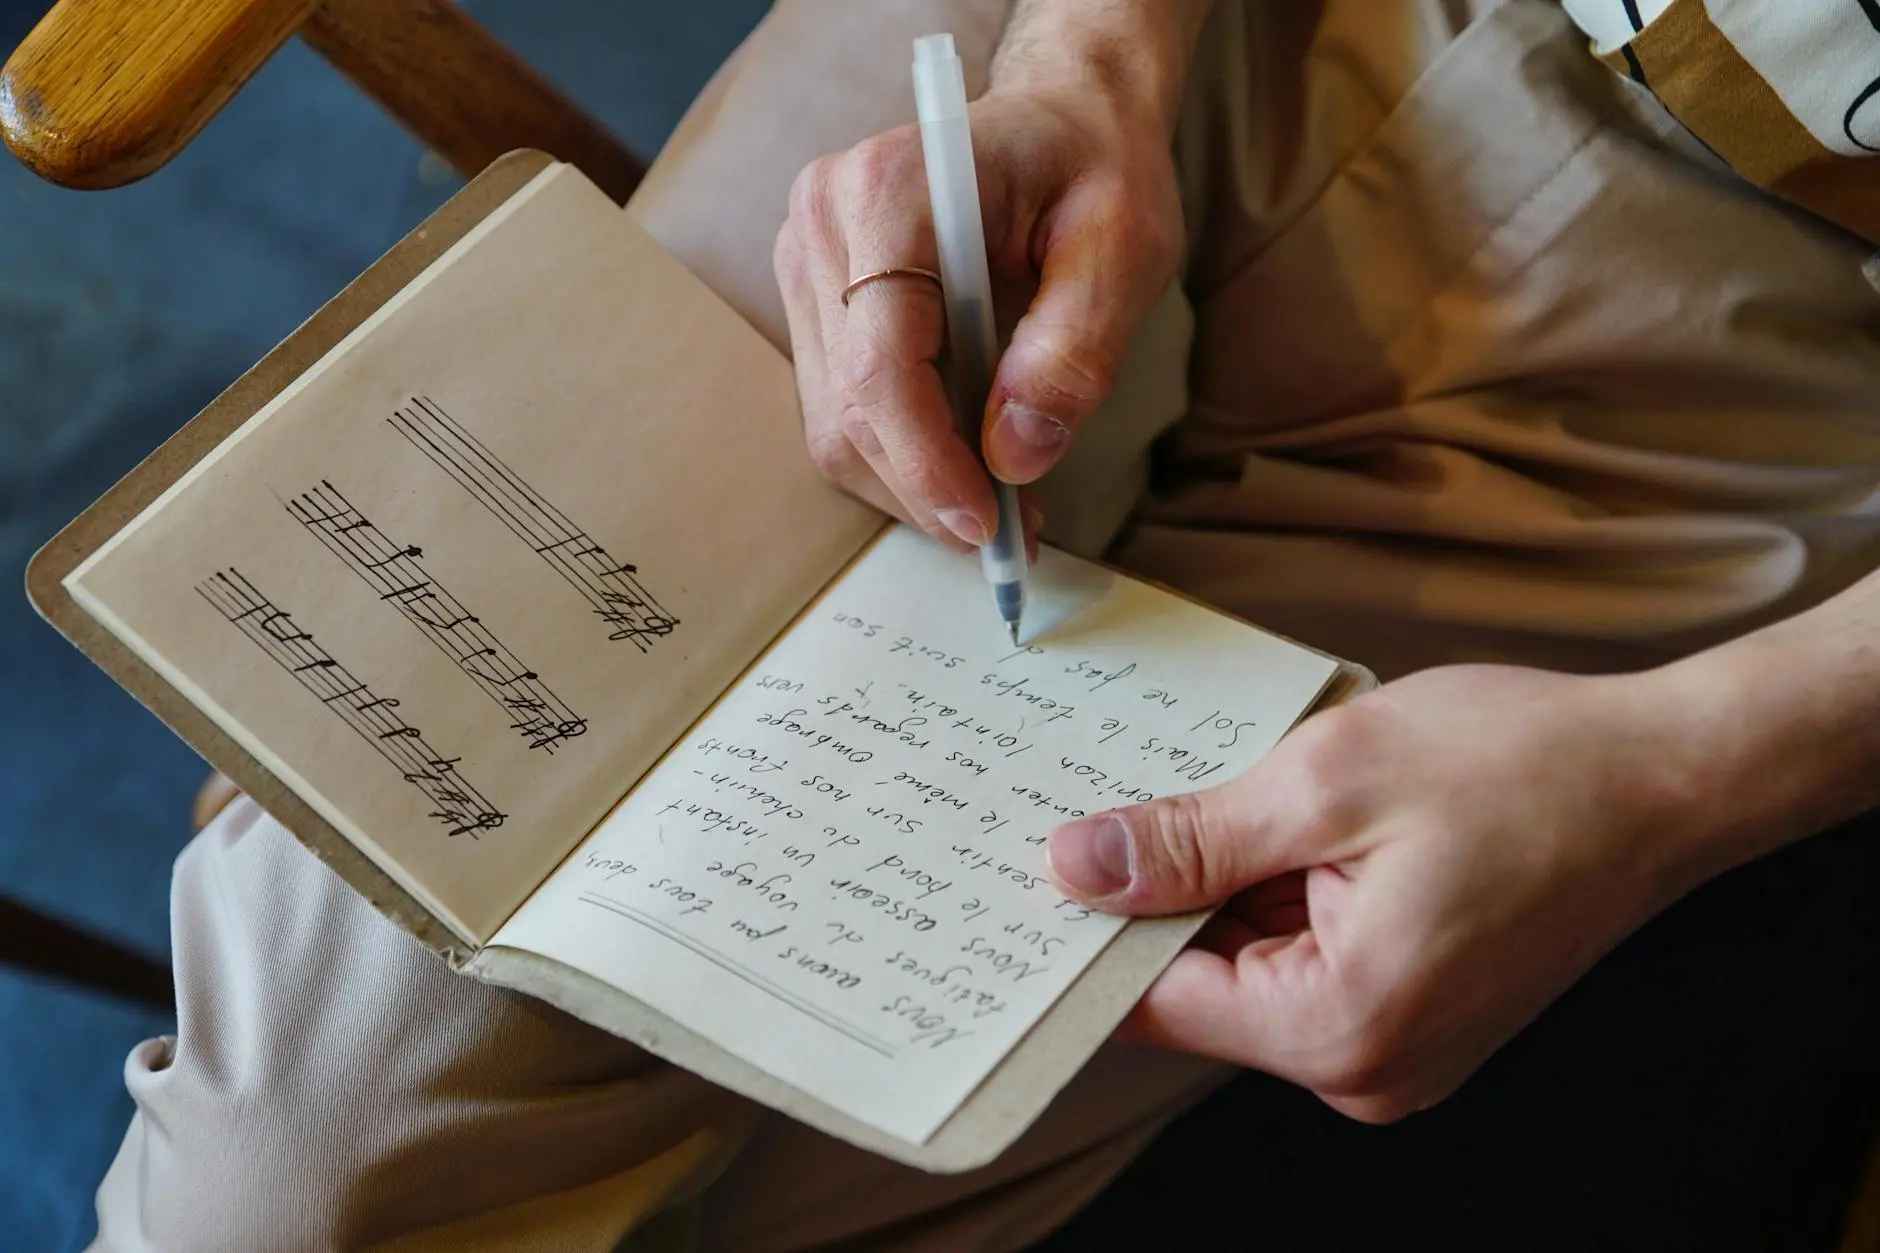 Nous avons pu tous deux,
fatigues du voyage
Nous asseoir un instant
Sur le bord du chemin-
Et sentir sur nos fronts
le même ombrage
nos regards vers
orizon lointain.
Mais le temps suit son
Sol ne pas d